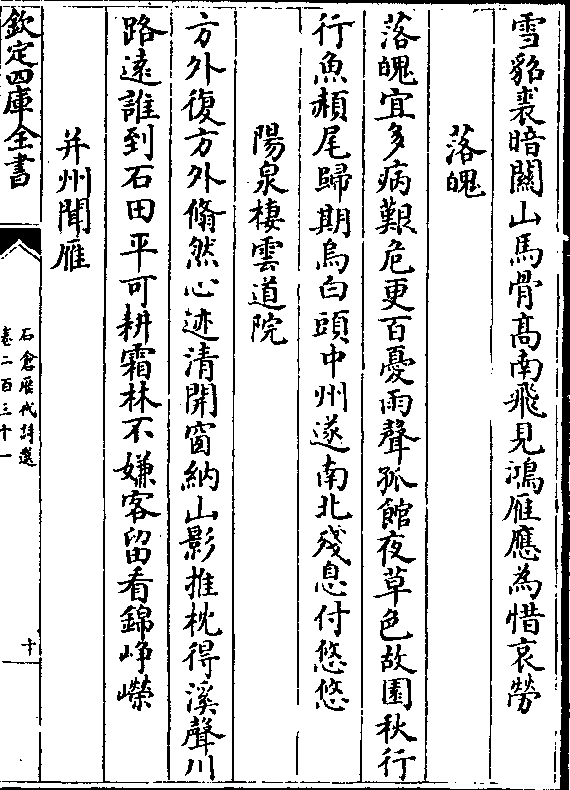 雪貂裘暗關山馬骨髙南飛見鴻雁應為惜哀勞
落魄
落魄宜多病艱危更百憂雨聲孤館夜草色故園秋行
行魚赬尾歸期烏白頭中州遂南北殘息付悠悠
陽泉棲雲道院
方外復方外翛然心迹清開窗納山影推枕得溪聲川
路遠誰到石田平可耕霜林不嫌客留看錦崢嶸
并州聞雁
欽定四庫全書
石倉歴代詩選
卷二百三十一
十